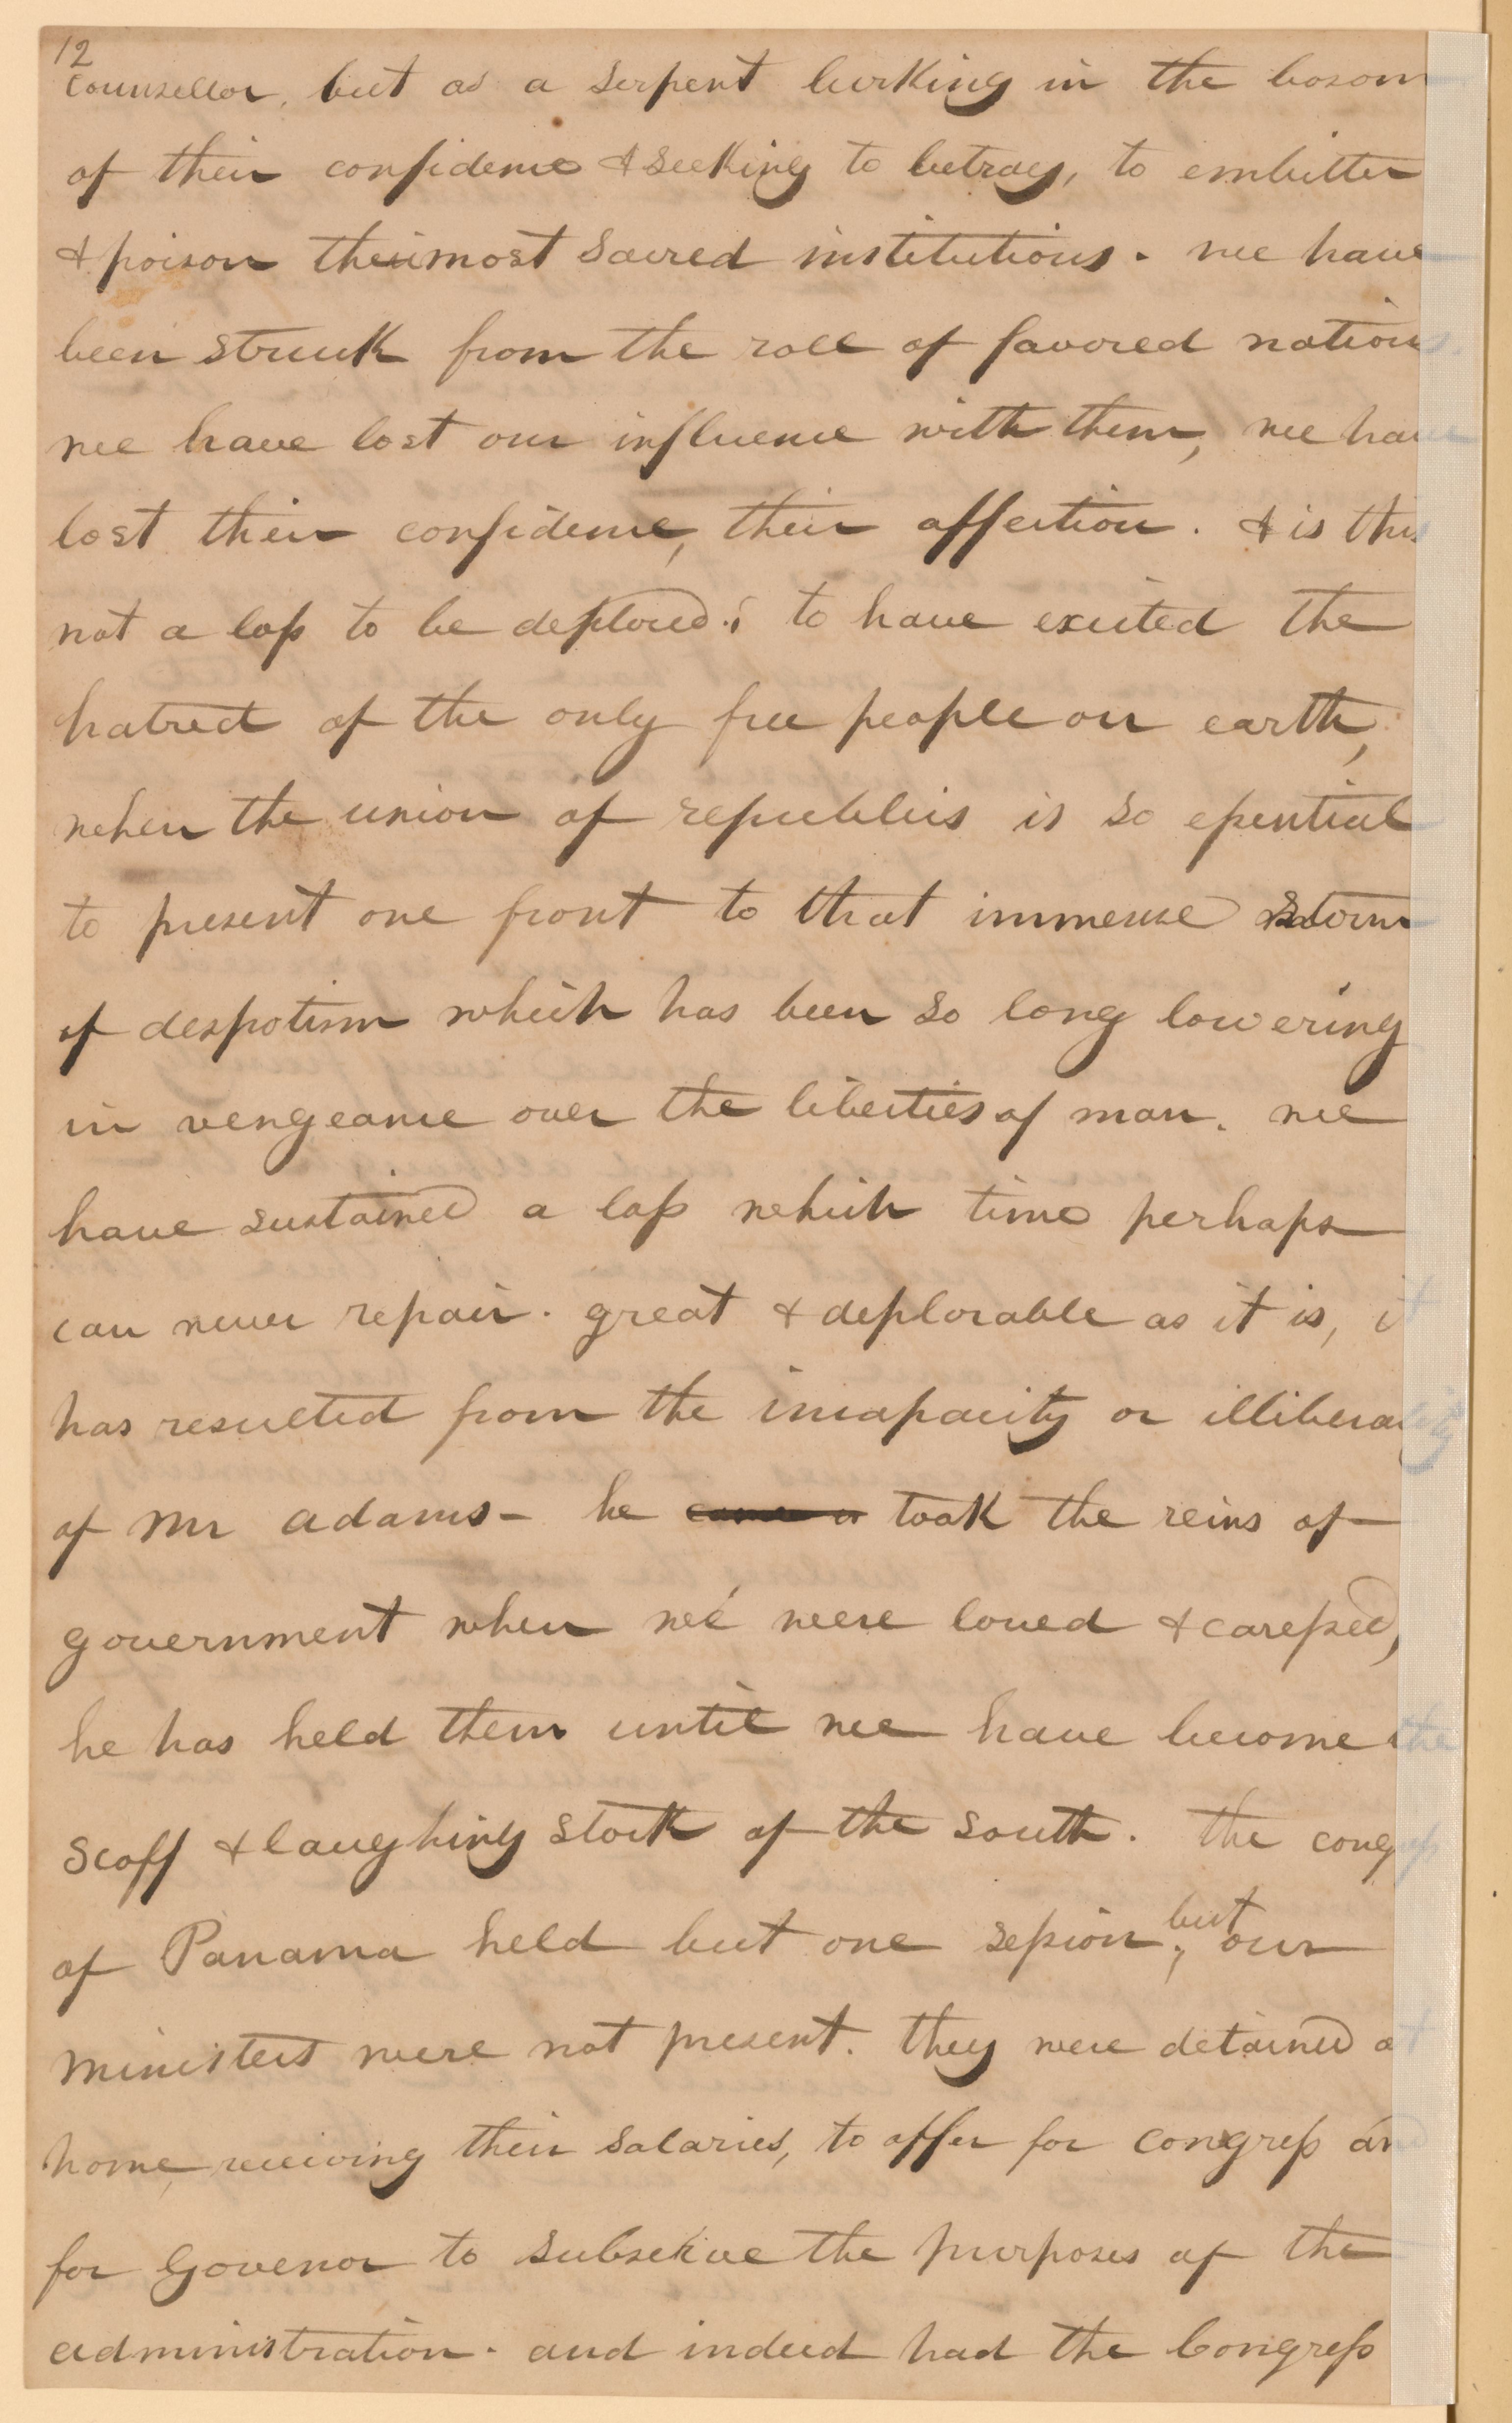 12
counsellor, but as a serpent lurking in the bosom
of their confidence & seeking to betray, to embitter
& poison their most sacred institutions. we have
been struck from the roll of favored nations.
we have lost our influence with them, we have
lost their confidence, their affection. & is this
not a loss to be deplored? to have excited the
hatred of the only free people on earth,
when the union of republics is so essential
to present one front to that immense storm
of despotism which has been so long lowering
in vengeance over the liberties of man. we
have sustained a loss which time perhaps
can never repair. great & deplorable as it is, it
has resulted from the incapacity or illiberality
of Mr adams - he took the reins of
government when we were loved & caressed,
he has held them until we have become the
scoff & laughing stock of the south. the congress
of Panama held but one session, but our
ministers were not present. they were detained at
home, receiving their salaries, to offer for congress and
for Govenor to subserve the purposes of the
administration. and indeed had the Congress